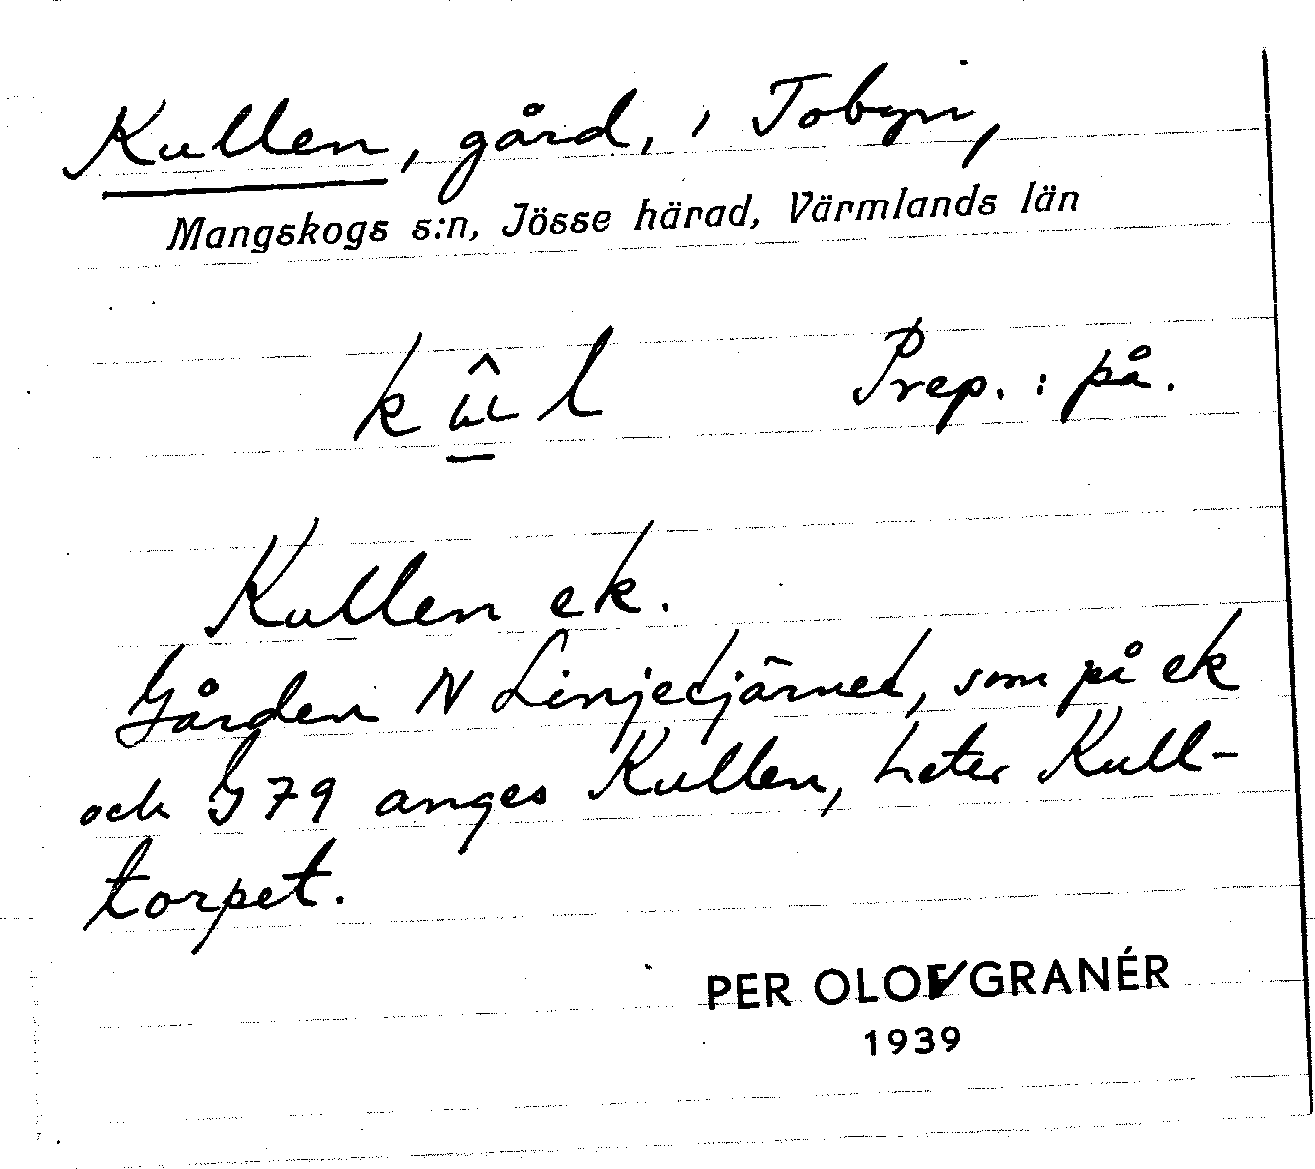 Kullen, gård, i Tobyn,
Mangskogs s:n, Jösse härad, Värmlands län
kûl Prep. : på.
Kullen ek.
Gården N Linjetjärnet, som på ek
och G 79 anges Kullen, heter Kull-
torpet.
PER OLOV GRANÉR
1939